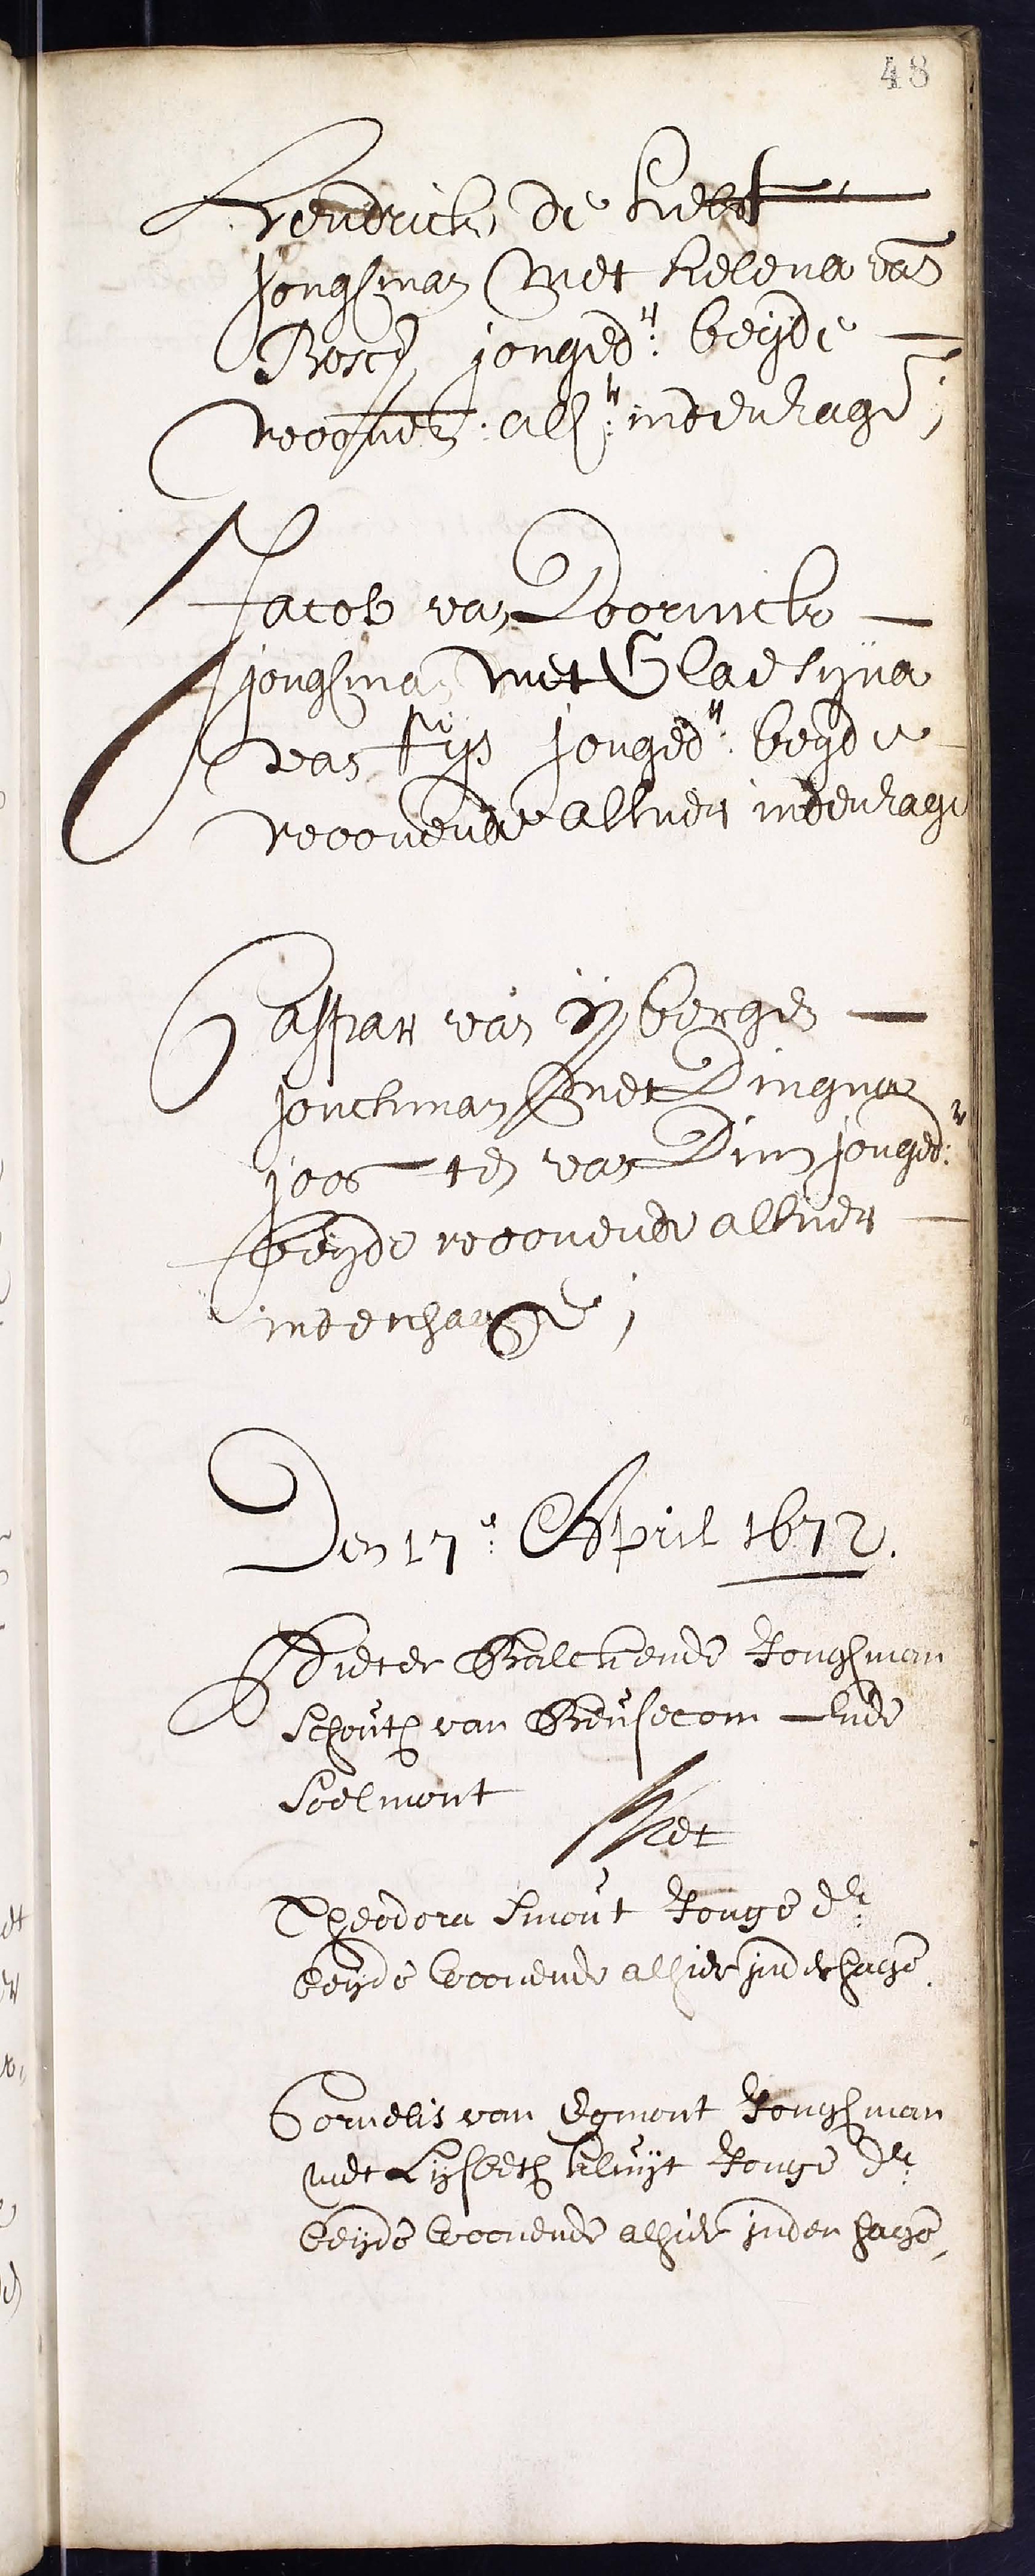 48
Hendrick de
Jongman Met helena van
Bosch jonged:r beyde
woonen: alh:r indenhage;
Jacob van Doornick
jongman met
van jonged:r beyde
woonende alhier indenhage
Caspar van berge
jonchman met Dingna
joosten van jonged:r
beyde woonende alhier
indenhage;
Den 17:e April 1672.
Pieter Balckende Jonghman
Schouth van Beusecom Ende
Soelmont
Met
Theodora Smout Jonge dr:
beyde woonende alhier inden hage.
Cornelis van Egmont Jonghman
met Lijsbeth kluijt Jonge dr:
beyde woonende alhier inden hage,